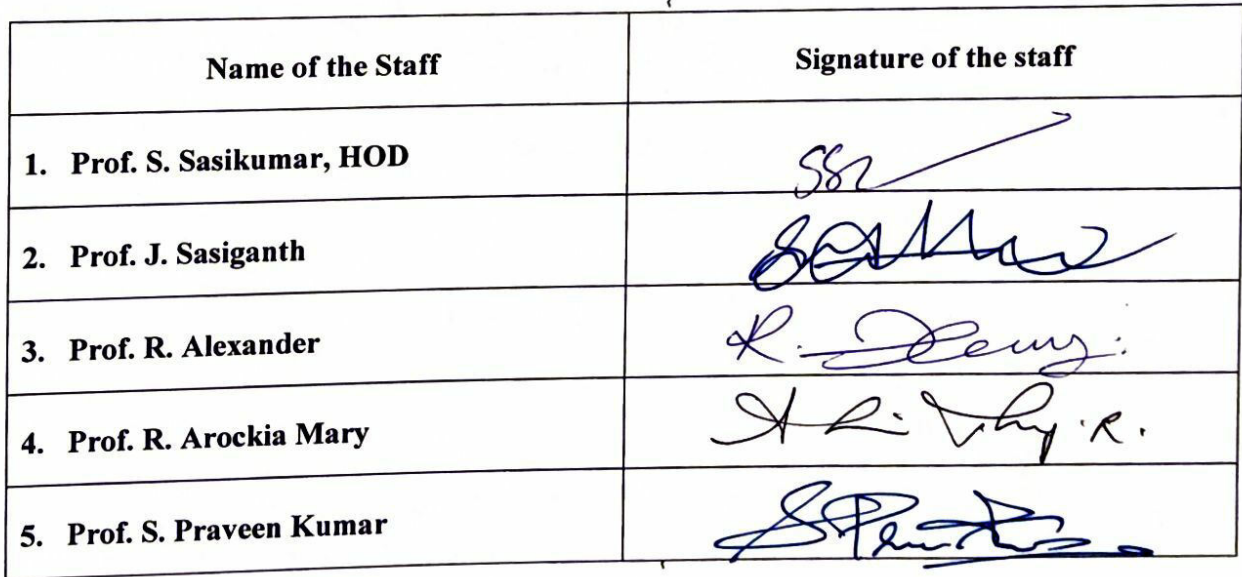 Name of the Staff Signature of the staff
1. Prof. S. Sasikumar, HOD
2. Prof. J. Sasiganth
3. Prof. R. Alexander
4. Prof. R. Arockia Mary
5. Prof. S. Praveen Kumar